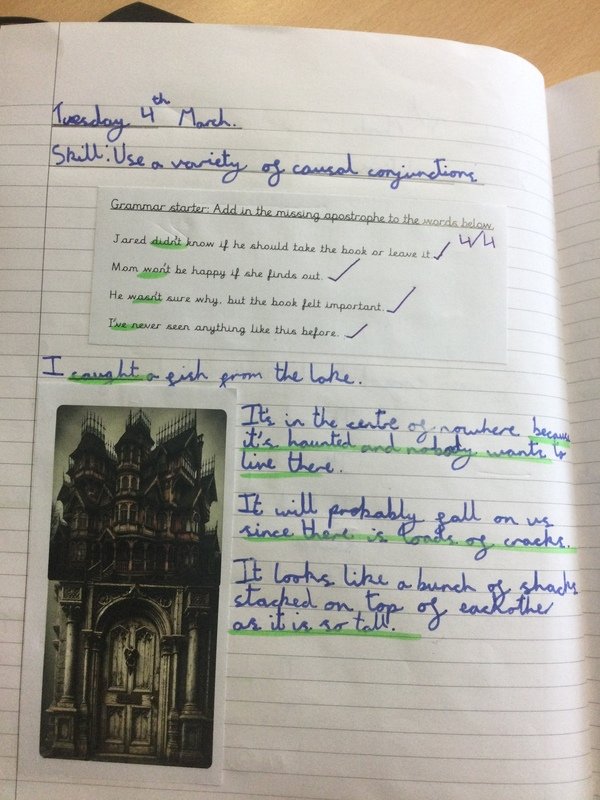 Tuesday 4th March.
Skill: Use a variety of causal conjunctions
Grammar starter: Add in the missing apostrophe to the words below
4/4
Jared didn't know if he should take the book or leave it.
Mom won't be happy if she finds out.
He wasn't sure why, but the book felt important.
I've never seen anything like this before.
I caught a fish from the lake.
It's in the centre of nowhere because
it's haunted and nobody wants to
live there.
It will probably fall on us
since there is loads of cracks.
It looks like a bunch of shacks
stacked on top of eachother
as it is so tall.